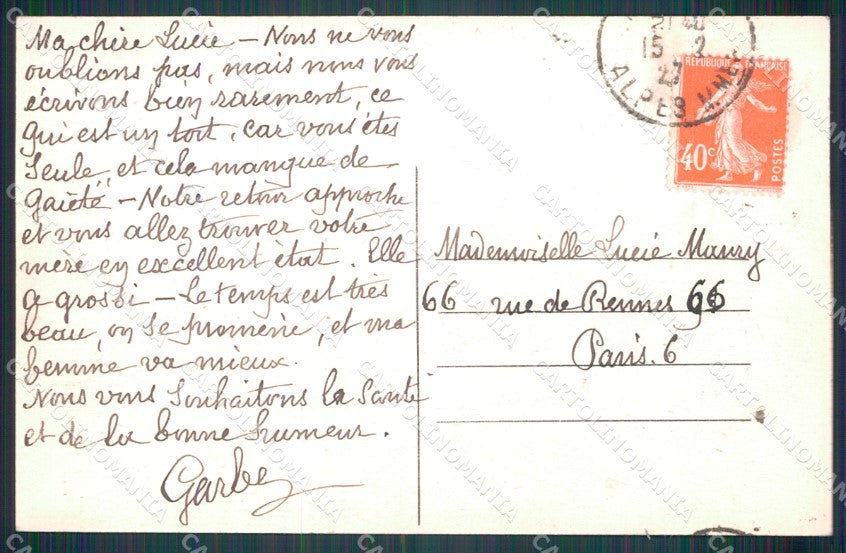 Ma chère Lucie – Nous ne vous
oublions pas, mais nous vous
écrivons bien rarement, ce
qui est un tort, car vous êtes
seule, et cela manque de
gaieté – Notre retour approche
et vous allez trouver votre
mère en excellent état. Elle
a grossi – Le temps est très
beau, on se promène, et ma
femme va mieux.
Nous vous souhaitons la santé
et de la bonne humeur.
15 2
27
ALPES MMES
REPUBLIQUE FRANÇAISE
40c
POSTES
Mademoiselle Lucie Maury
66 rue de Rennes 66
Paris. 6
CARTOLINOMANIA